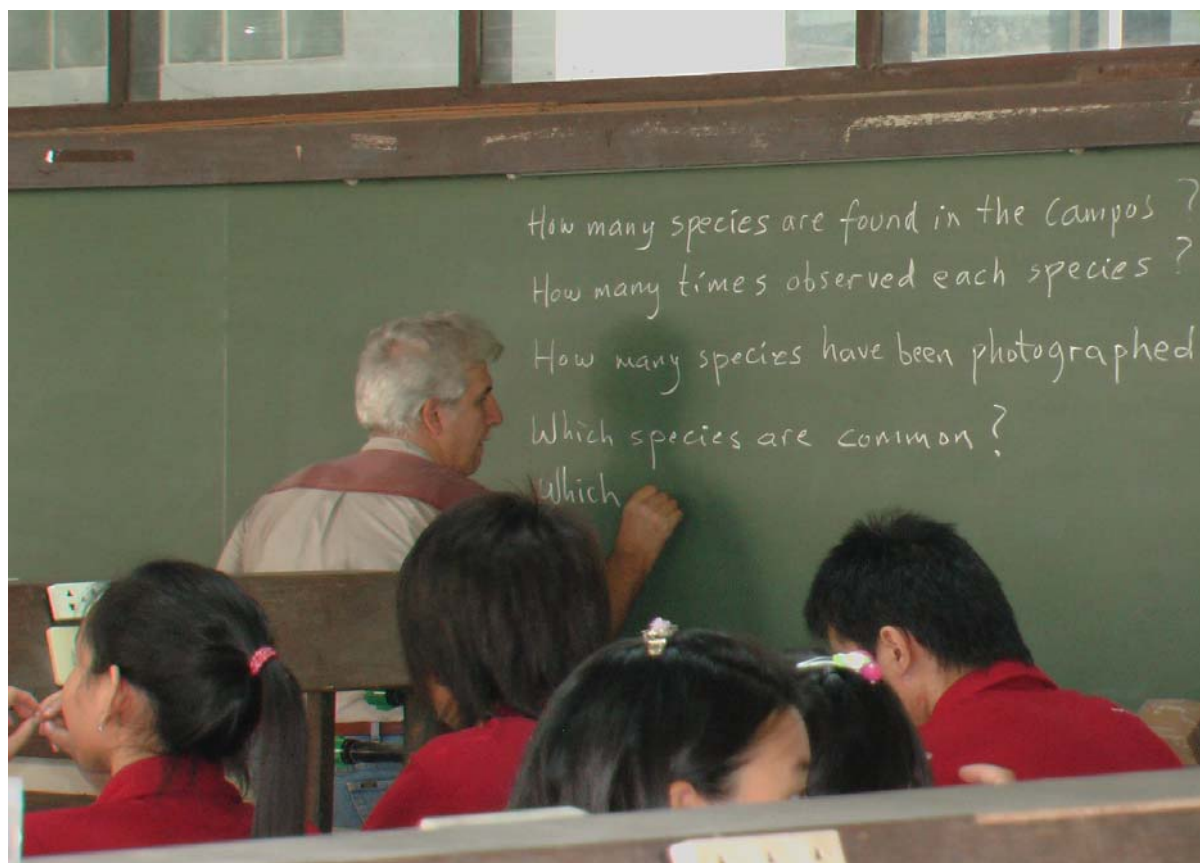 How many species are found in the Campos ?
How many times observed each species ?
How many species have been photographed
Which species are common ?
Which